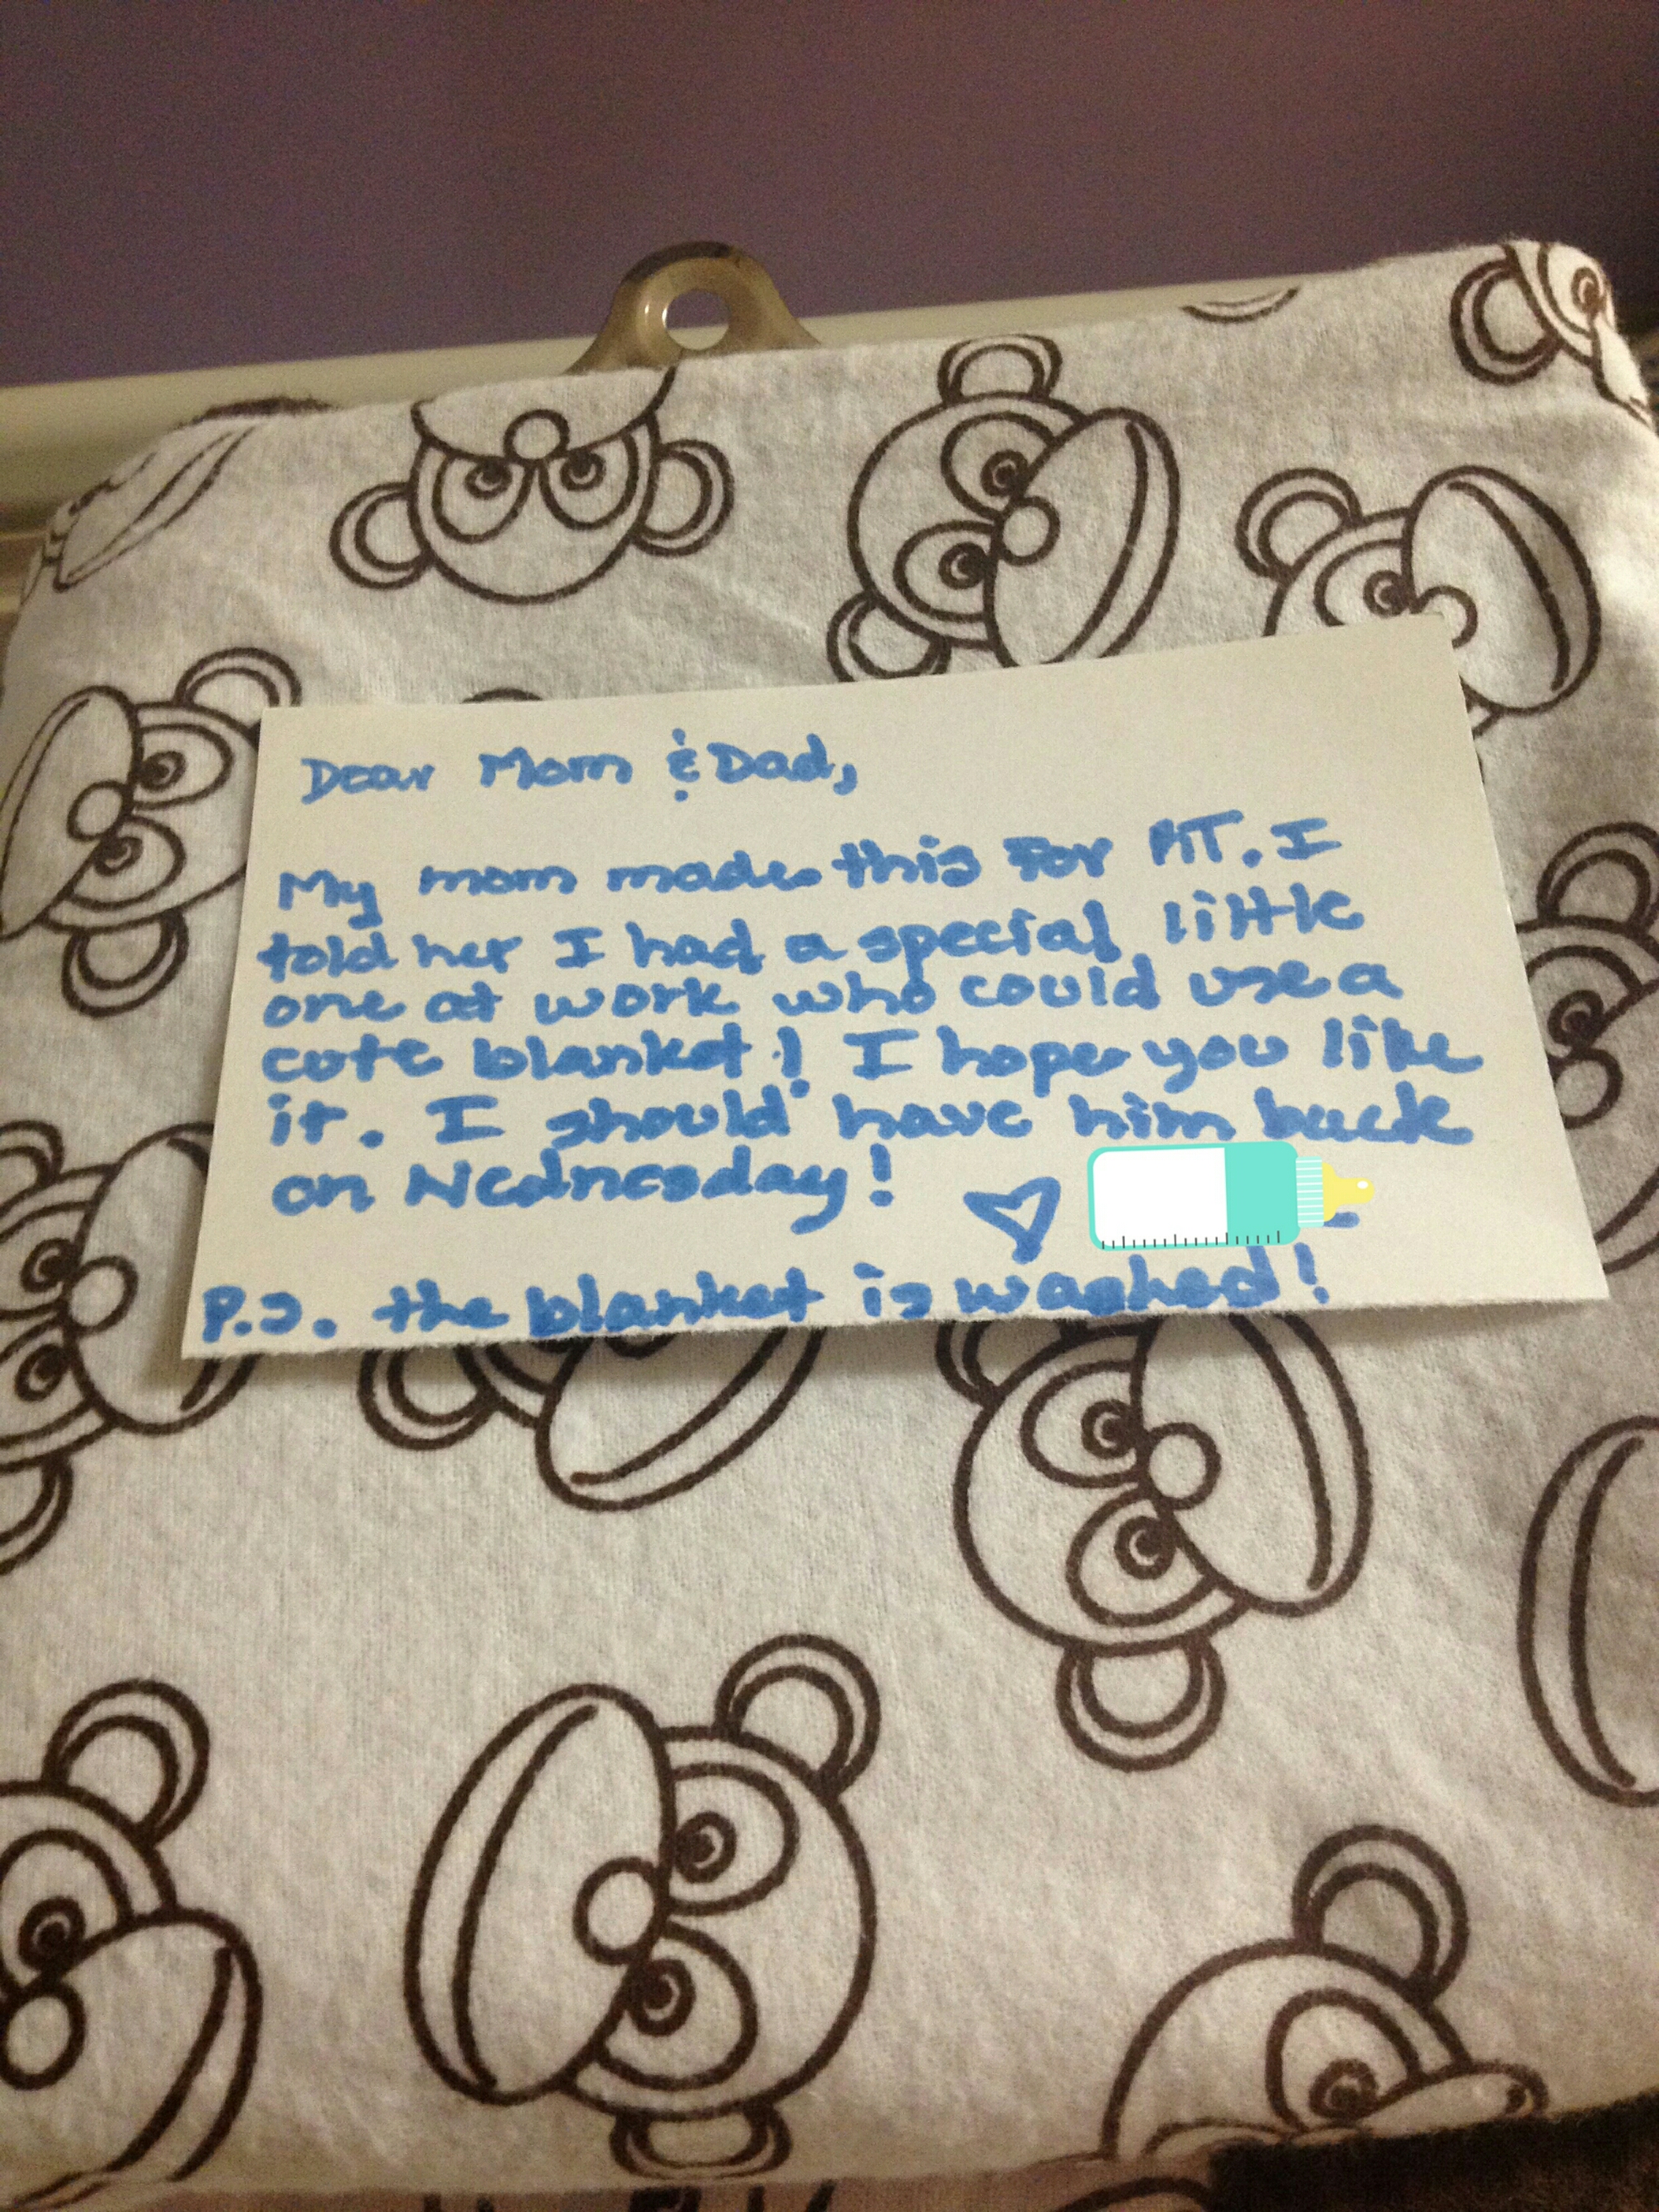 Dear Mom & Dad,
My mom made this for AT. I
told her I had a special little
one at work who could use a
cute blanket! I hope you like
it. I should have him back
on Wednesday!
P.S. the blanket is washed!